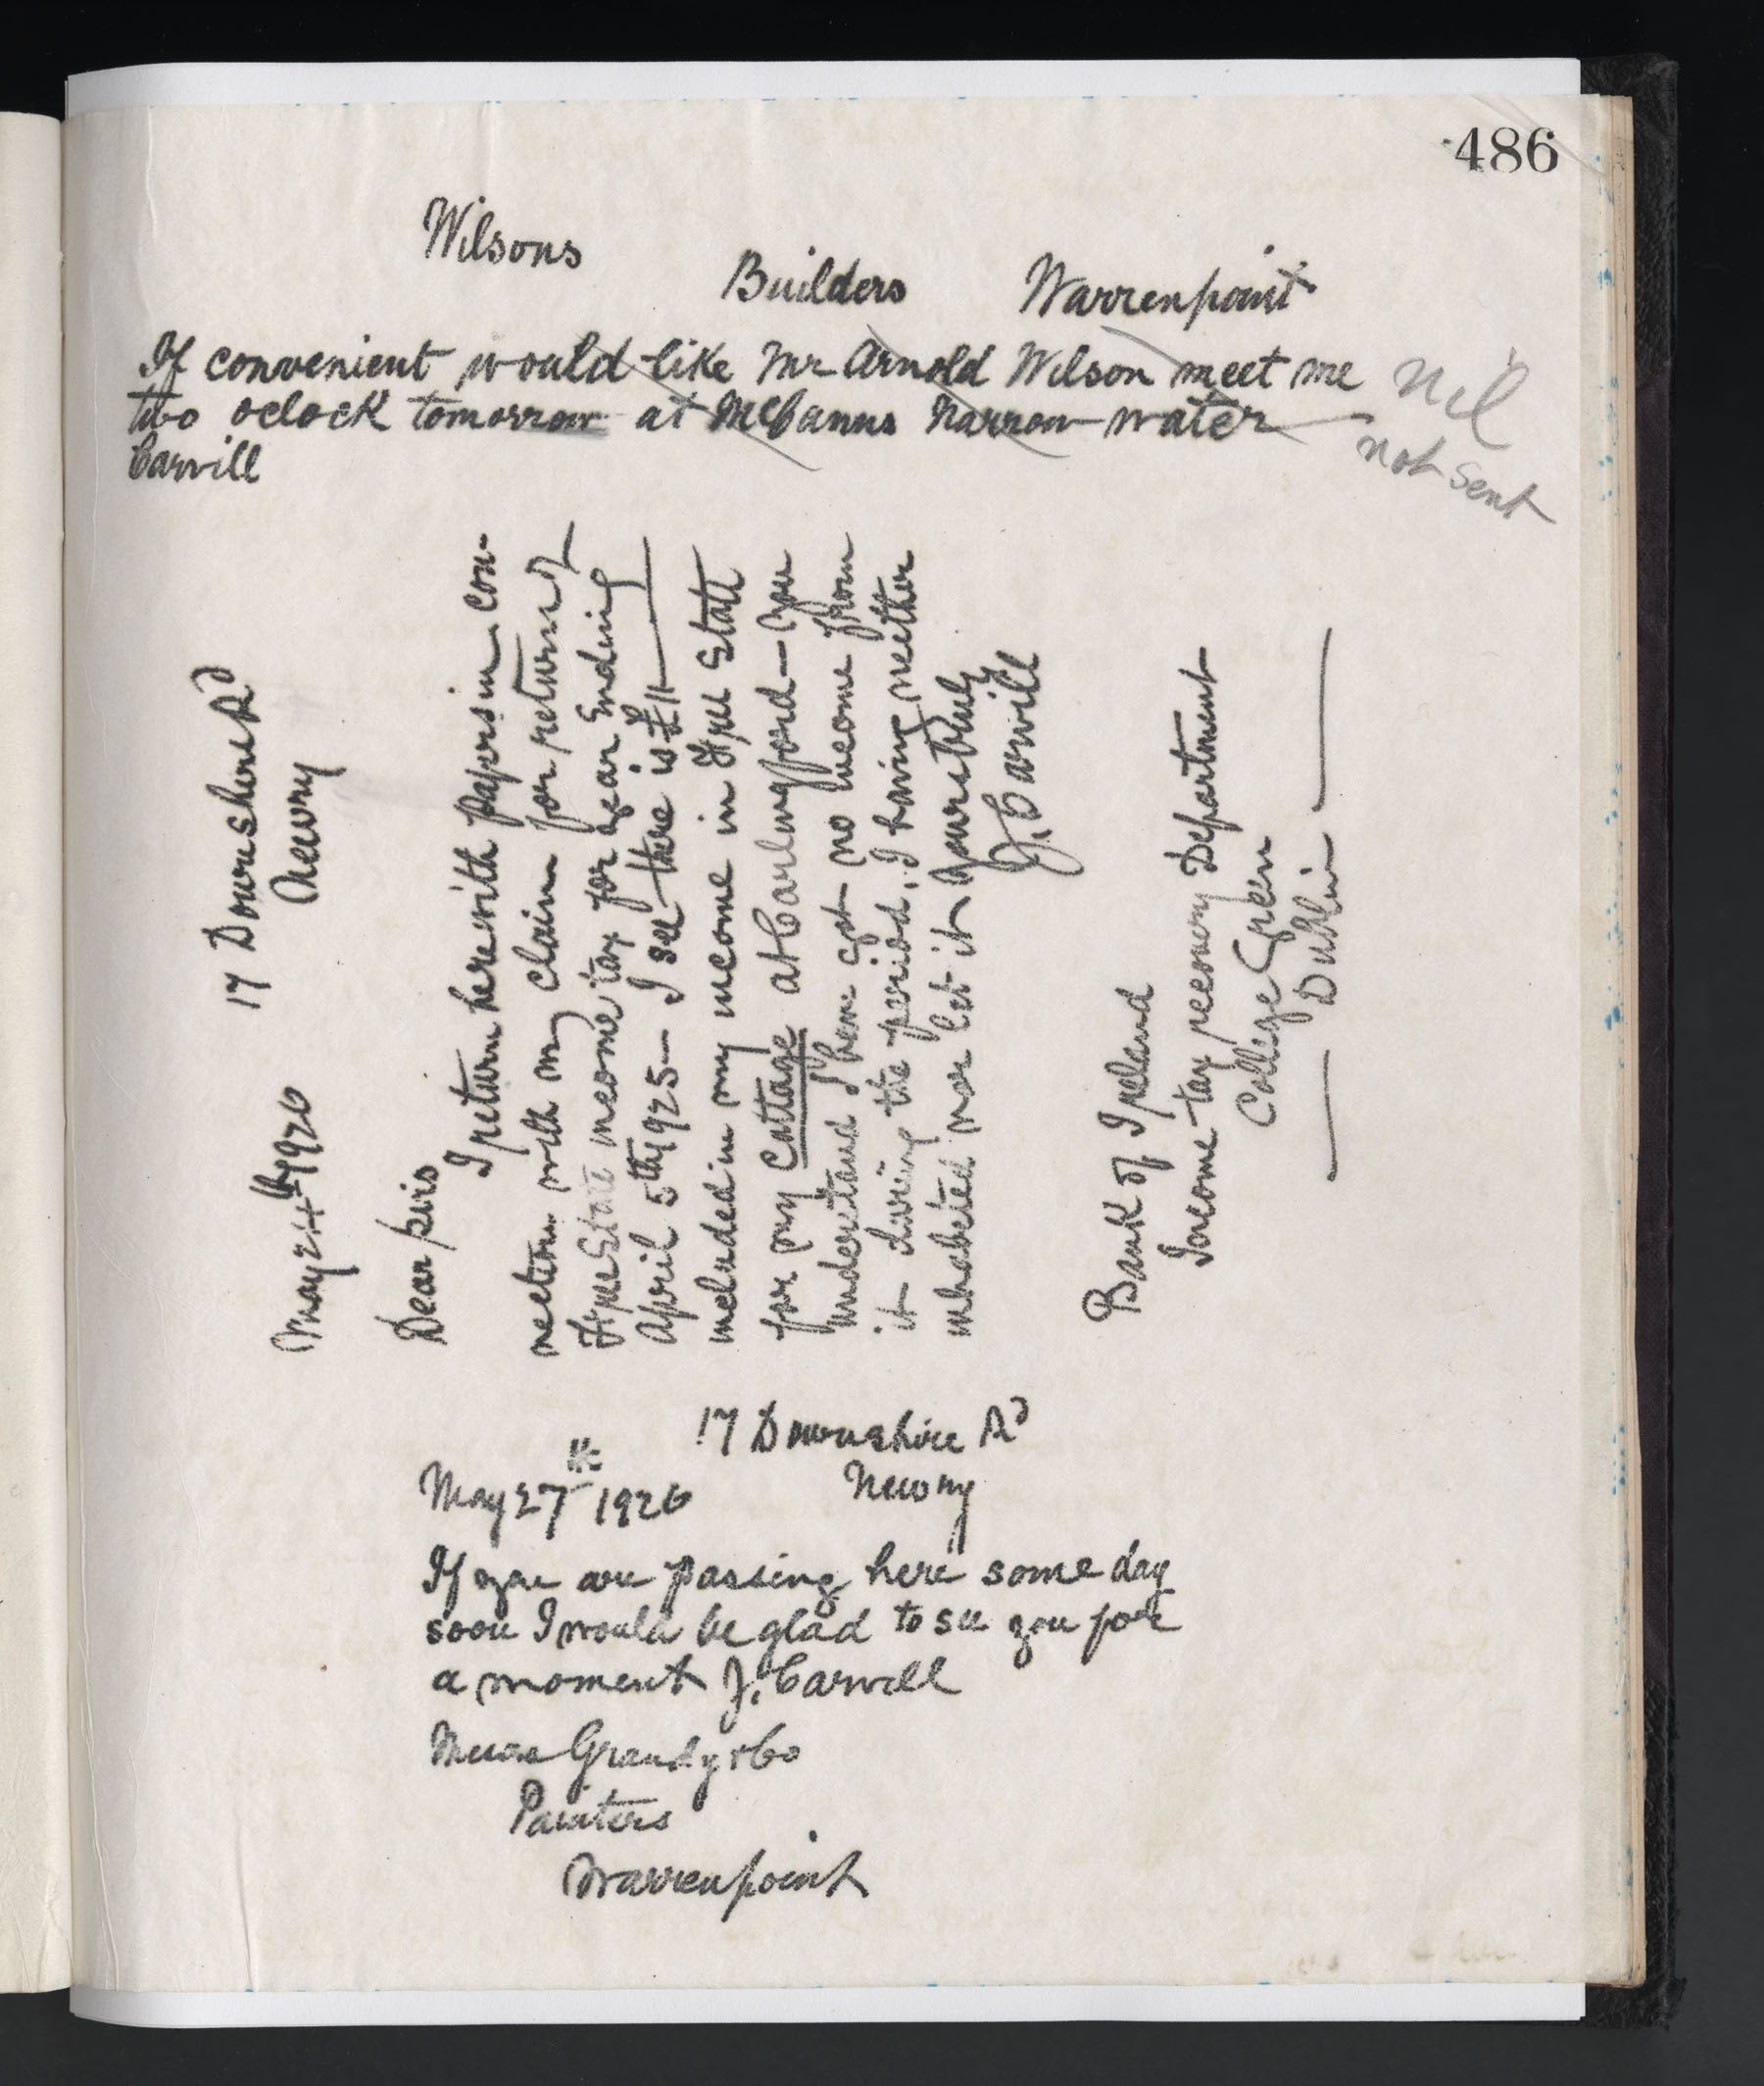 486
Wilsons
Builders Warrenpoint
If convenient would like Mr Arnold Wilson meet me
two oclock tomorrow at McCanns Narrow water
Carvill
Nil
not sent
17 Downshire Rd
May 24th 1926 Newry
Dear Sirs
I return herewith papers in con-
nection with my claim for return of
Free State income tax for year Ending
April 5th 1925 — I see there is £11
included in my income in Free State
for my Cottage at Carlingford — you
understand I have got no income from
it during the period, I having neither
inhabited nor let it Yours truly
J. Carvill
Bank of Ireland
Income tax recovery Department
College Green
Dublin
17 Downshire Rd
May 27th 1926 Newry
If you are passing here some day
soon I would be glad to see you for
a moment J. Carvill
Messrs Grandy & Co
Painters
Warrenpoint